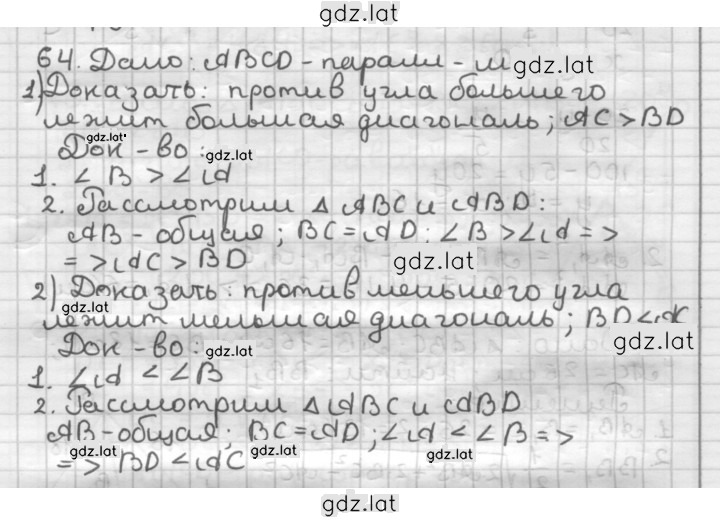 gdz.lat
64. Дано: ABCD - паралл - м gdz.lat
1) Доказать: против угла большего
лежит большая диагональ; AC > BD
gdz.lat
Док - во: gdz.lat
1. ∠B > ∠A
2. Рассмотрим △ABC и ABD:
AB - общая; BC = AD; ∠B > ∠A =>
=> AC > BD gdz.lat
2) Доказать: против меньшего угла
gdz.lat
лежит меньшая диагональ; BD < AC
Док - во: gdz.lat gdz.lat
1. ∠A < ∠B
2. Рассмотрим △ABC и ABD
AB - общая; BC = AD; ∠A < ∠B =>
gdz.lat gdz.lat gdz.lat
=> BD < AC
gdz.lat